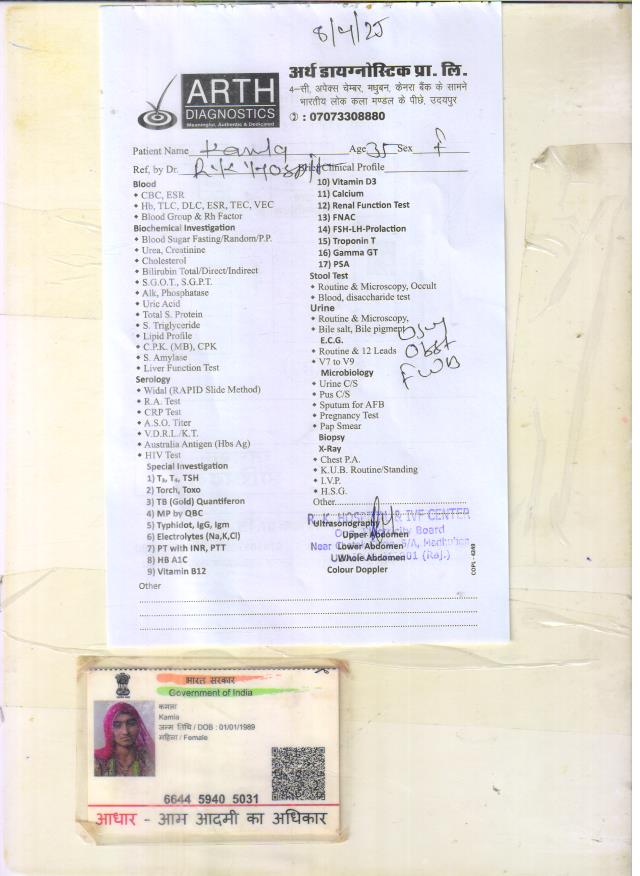 8/4/25
ARTH
DIAGNOSTICS
Meaningful, Authentic & Dedicated
अर्थ डायग्नोस्टिक प्रा. लि.
4-सी, अपेक्स चेम्बर, मधुबन, केनरा बैंक के सामने
भारतीय लोक कला मण्डल के पीछे, उदयपुर
: 07073308880
Patient Name Kamla Age 35 Sex f
Ref, by Dr. R.K Hospital Brief Clinical Profile
Blood
CBC, ESR
Hb, TLC, DLC, ESR, TEC, VEC
Blood Group & Rh Factor
Biochemical Investigation
Blood Sugar Fasting/Random/P.P.
Urea, Creatinine
Cholesterol
Bilirubin Total/Direct/Indirect
S.G.O.T., S.G.P.T.
Alk, Phosphatase
Uric Acid
Total S. Protein
S. Triglyceride
Lipid Profile
C.P.K. (MB), CPK
S. Amylase
Liver Function Test
Serology
Widal (RAPID Slide Method)
R.A. Test
CRP Test
A.S.O. Titer
V.D.R.L./K.T.
Australia Antigen (Hbs Ag)
HIV Test
Special Investigation
1) T3, T4, TSH
2) Torch, Toxo
3) TB (Gold) Quantiferon
4) MP by QBC
5) Typhidot, IgG, Igm
6) Electrolytes (Na,K,Cl)
7) PT with INR, PTT
8) HB A1C
9) Vitamin B12
Other
10) Vitamin D3
11) Calcium
12) Renal Function Test
13) FNAC
14) FSH-LH-Prolaction
15) Troponin T
16) Gamma GT
17) PSA
Stool Test
Routine & Microscopy, Occult
Blood, disaccharide test
Urine
Routine & Microscopy,
Bile salt, Bile pigment
E.C.G.
Routine & 12 Leads
V7 to V9
USG
Obst
FWB
Microbiology
Urine C/S
Pus C/S
Sputum for AFB
Pregnancy Test
Pap Smear
Biopsy
X-Ray
Chest P.A.
K.U.B. Routine/Standing
I.V.P.
H.S.G.
Other
Ultrasonography
Upper Abdomen
Lower Abdomen
Whole Abdomen
Colour Doppler
R. K. HOSPITAL & IVF CENTER
Opp. Electricity Board
Near 5/A, Madhuban
01 (Raj.)
COPL - 4249
भारत सरकार
Government of India
कमला
Kamla
जन्म तिथि / DOB : 01/01/1989
महिला / Female
6644 5940 5031
आधार - आम आदमी का अधिकार